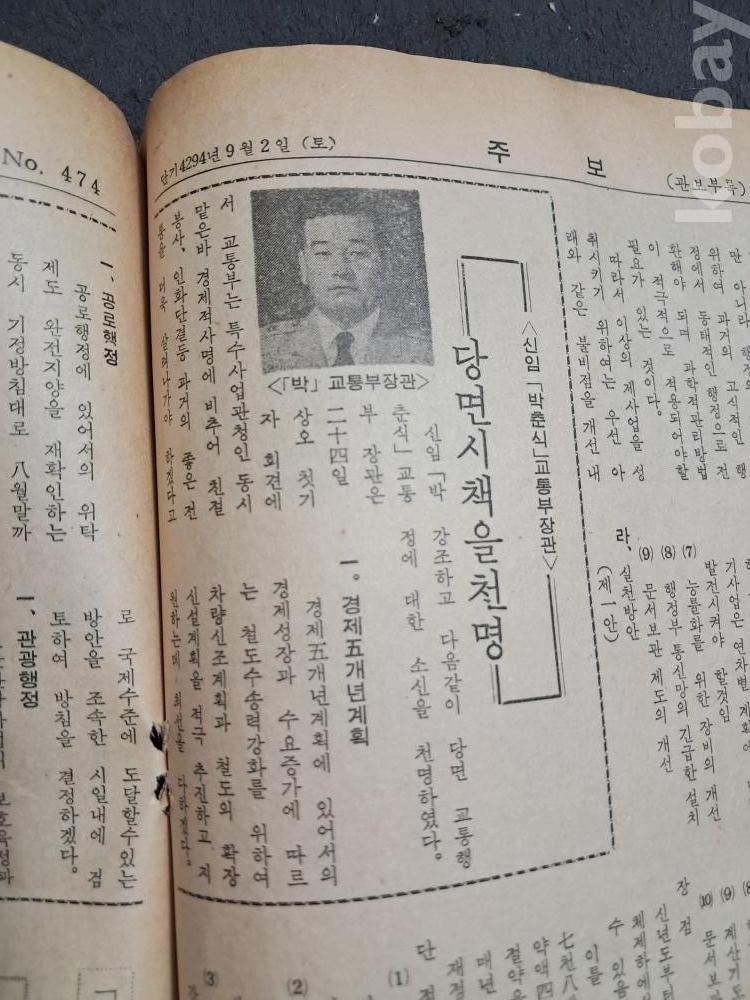 kobay
단기4294년 9월 2일 (토)
주보
(관보부록)
만 아니라 행정의
위하여 과거의 고식적인 행
정에서 동태적인 행정으로 전
환해야 되며 과학적관리방법
이 적극적으로 적용되어야할
필요가 있는 것이다.
따라서 이상의 제사업을 성
취시키기 위하여는 우선 아
래와 같은 불비점을 개선 내
기사업은 연차별 계획에
발전시켜야 할것임
⑺ 능률화를 위한 장비의 개선
⑻ 행정부 통신망의 긴급한 설치
⑼ 문서보관 제도의 개선
라, 실천방안
(제一안)
<신임「박춘식」교통부장관>
당면시책을천명
<「박」교통부장관>
신임「박
춘식」교통
부 장관은
二十四일
상오 첫기
자 회견에
서 교통부는 특수사업관청인 동시
맡은바 경제적사명에 비추어 친절
봉사, 인화단결등 과거의 좋은 전
통을 더욱 살려나가야 하겠다고
강조하고 다음같이 당면 교통행
정에 대한 소신을 천명하였다.
一. 경제五개년계획
경제五개년계획에 있어서의
경제성장과 수요증가에 따르
는 철도수송력강화를 위하여
차량신조계획과 철도의 확장
신설계획을 적극 추진하고 지
원하는데 최선을 다하겠다.
⑼
⑽ 문서보
장점
신년도부터
체제하에
수 있음
이를
七천八
약액四
절약은
매년
재정
단점
(1)
(2)
(3)
No. 474
一, 공로행정
공로행정에 있어서의 위탁
제도 완전지양을 재확인하는
동시 기정방침대로 八월말까
로 국제수준에 도달할수있는
방안을 조속한 시일내에 검
토하여 방침을 결정하겠다.
一, 관광행정